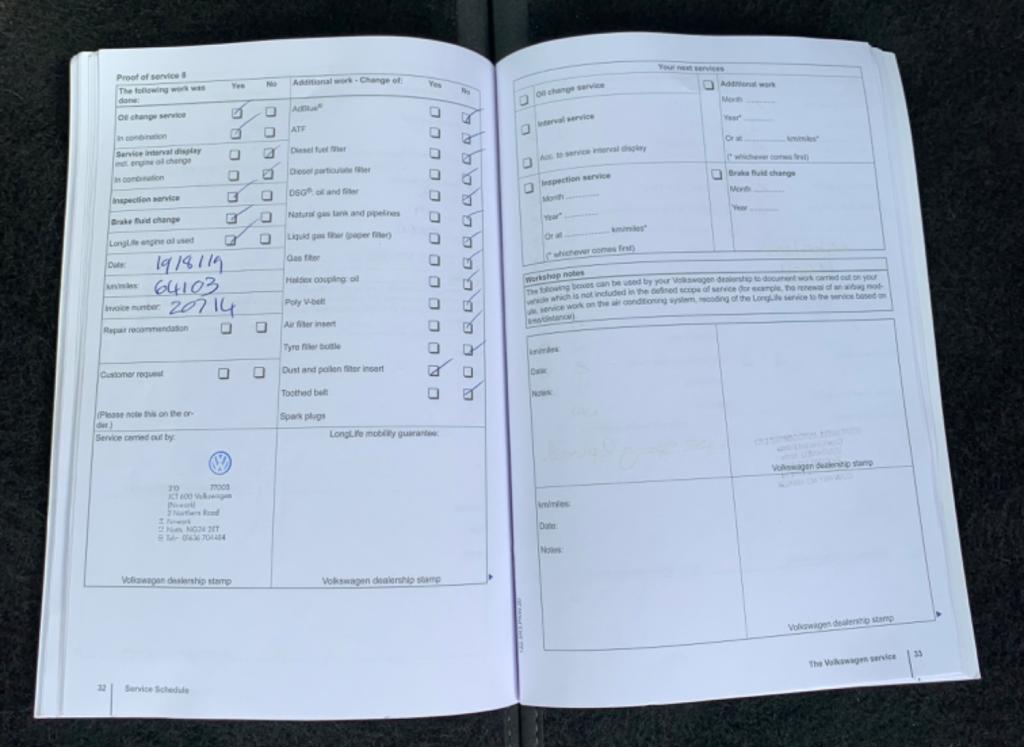 Proof of service 8
The following work was done:
Yes No
Oil change service
In combination
Service interval display
incl. engine oil change
In combination
Inspection service
Brake fluid change
LongLife engine oil used
Date: 19/8/19
km/miles: 64103
Invoice number: 20714
Repair recommendation
Customer request
(Please note this on the or-
der.)
Service carried out by:
210 77003
JCT 600 Volkswagen
(Newark)
2 Northern Road
Newark
Notts. NG24 2ET
Tel:- 01636 704484
Volkswagen dealership stamp
Additional work - Change of:
Yes No
AdBlue®
ATF
Diesel fuel filter
Diesel particulate filter
DSG®: oil and filter
Natural gas tank and pipelines
Liquid gas filter (paper filter)
Gas filter
Haldex coupling: oil
Poly V-belt
Air filter insert
Tyre filler bottle
Dust and pollen filter insert
Toothed belt
Spark plugs
LongLife mobility guarantee:
Volkswagen dealership stamp
32 Service Schedule
Your next services
Oil change service
Interval service
Acc. to service interval display
Inspection service
Month ............
Year* ............
Or at ................ km/miles*
(* whichever comes first)
Additional work
Month ..........
Year* ..........
Or at ................ km/miles*
(* whichever comes first)
Brake fluid change
Month ..........
Year ..........
Workshop notes
The following boxes can be used by your Volkswagen dealership to document work carried out on your
vehicle which is not included in the defined scope of service (for example, the renewal of an airbag mod-
ule, service work on the air conditioning system, recoding of the LongLife service to the service based on
time/distance).
km/miles:
Date:
Notes:
Volkswagen dealership stamp
km/miles:
Date:
Notes:
Volkswagen dealership stamp
The Volkswagen service 33